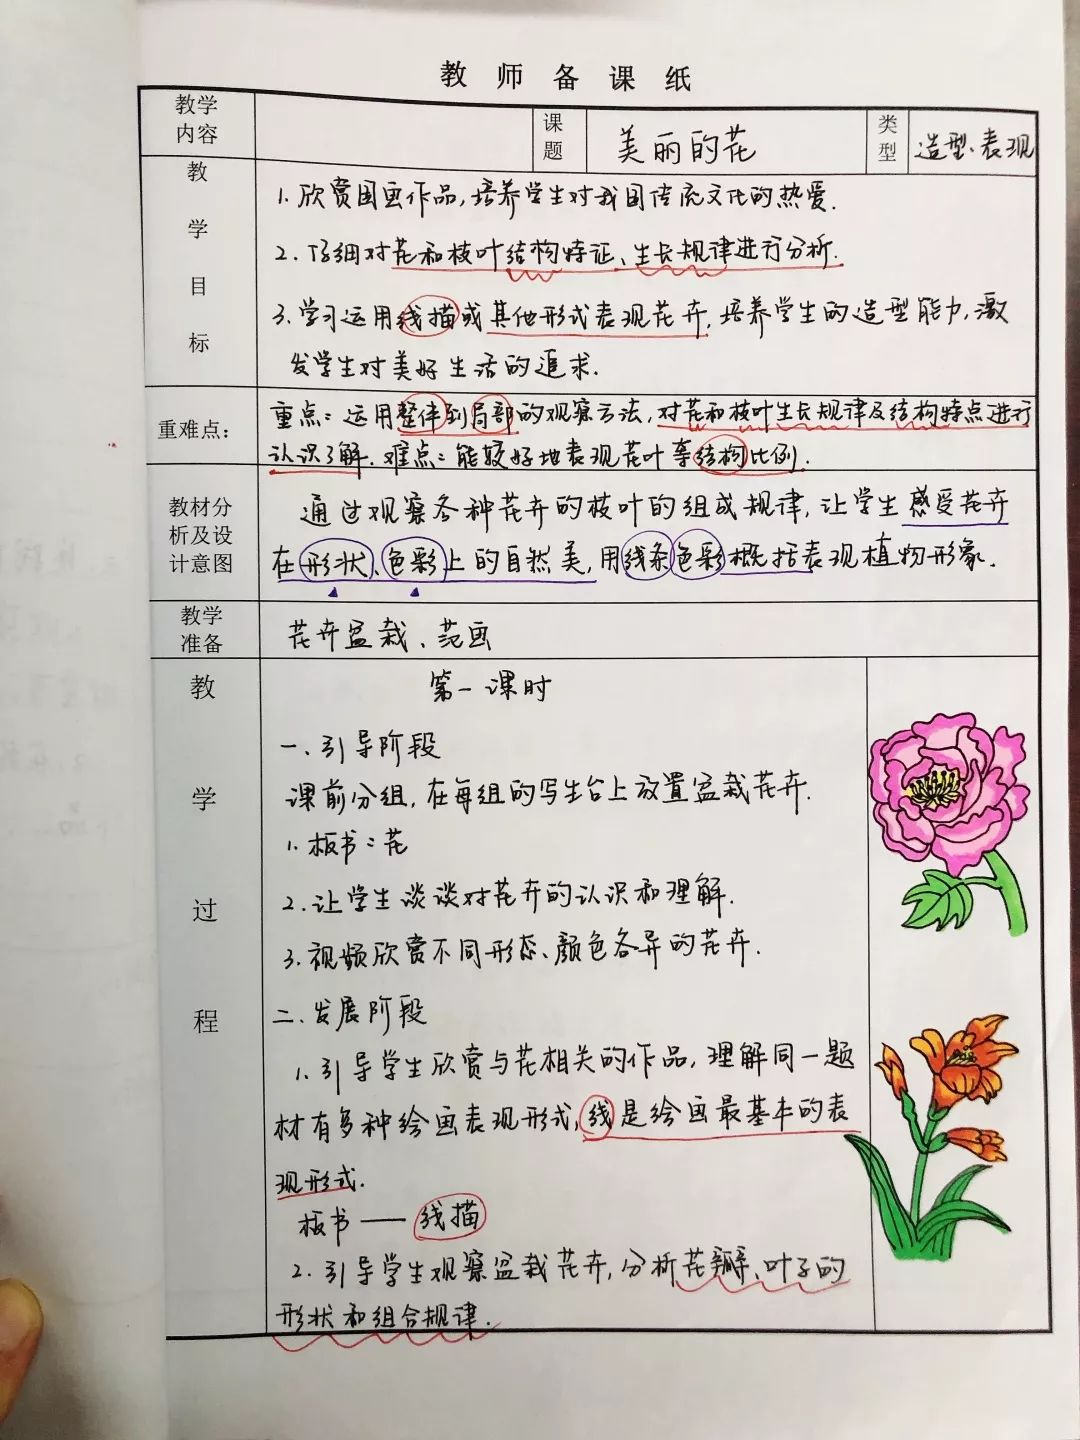 教师备课纸
教学内容
课题
美丽的花
类型
造型·表现
教学目标
1.欣赏国画作品,培养学生对我国传统文化的热爱.
2.仔细对花和枝叶结构特征、生长规律进行分析.
3.学习运用线描或其他形式表现花卉,培养学生的造型能力,激
发学生对美好生活的追求.
重难点:
重点:运用整体到局部的观察方法,对花和枝叶生长规律及结构特点进行
认识了解.难点:能较好地表现花叶等结构比例.
教材分
析及设
计意图
通过观察各种花卉的枝叶的组成规律,让学生感受花卉
在形状、色彩上的自然美,用线条色彩概括表现植物形象.
教学
准备
花卉盆栽、范画
教学过程
第一课时
一、引导阶段
课前分组,在每组的写生台上放置盆栽花卉.
1.板书:花
2.让学生谈谈对花卉的认识和理解.
3.视频欣赏不同形态、颜色各异的花卉.
二、发展阶段
1.引导学生欣赏与花相关的作品,理解同一题
材有多种绘画表现形式,线是绘画最基本的表
现形式.
板书——线描
2.引导学生观察盆栽花卉,分析花瓣、叶子的
形状和组合规律.